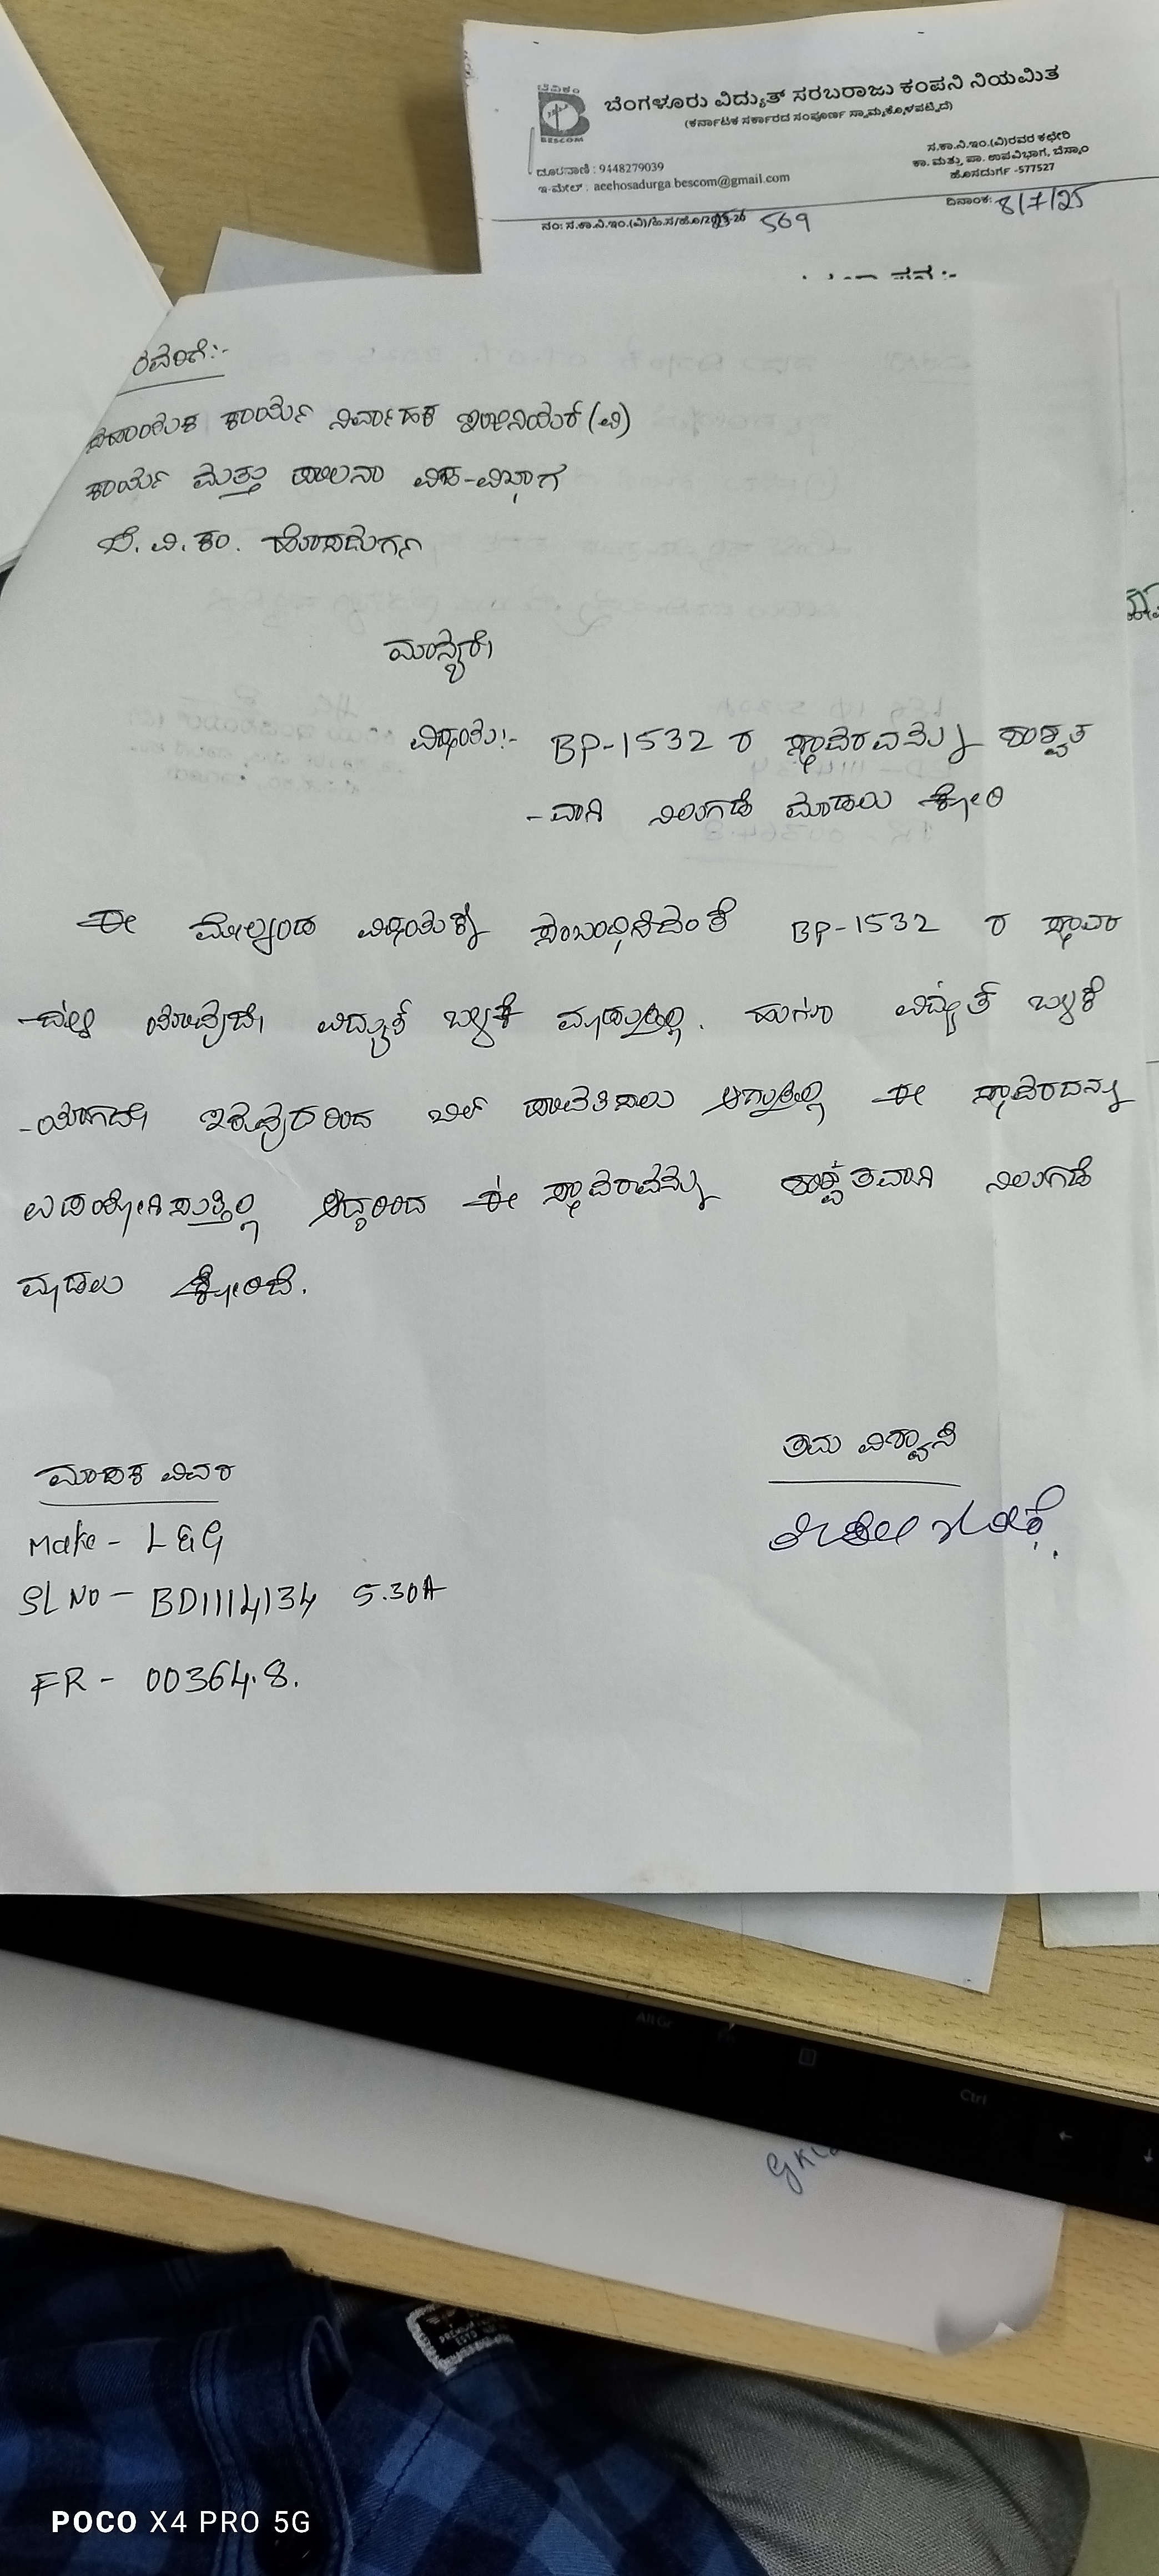 ಬೆವಿಕಂ
BESCOM
ಬೆಂಗಳೂರು ವಿದ್ಯುತ್ ಸರಬರಾಜು ಕಂಪನಿ ನಿಯಮಿತ
(ಕರ್ನಾಟಕ ಸರ್ಕಾರದ ಸಂಪೂರ್ಣ ಸ್ವಾಮ್ಯಕ್ಕೊಳಪಟ್ಟಿದೆ)
ದೂರವಾಣಿ : 9448279039
ಇ-ಮೇಲ್ : aeehosadurga.bescom@gmail.com
ಸ.ಕಾ.ನಿ.ಇಂ.(ವಿ)ರವರ ಕಛೇರಿ
ಕಾ. ಮತ್ತು ಪಾ. ಉಪವಿಭಾಗ, ಬೆಸ್ಕಾಂ
ಹೊಸದುರ್ಗ -577527
ನಂ: ಸ.ಕಾ.ನಿ.ಇಂ.(ವಿ)/ಹಿ.ಸ/ಹೊ/2025-26 569
ದಿನಾಂಕ: 8/7/25
ರವರಿಗೆ:-
ಕಾರ್ಯ ನಿರ್ವಾಹಕ ಇಂಜಿನಿಯರ್ (ವಿ)
ಕಾರ್ಯ ಮತ್ತು ಪಾಲನಾ ಉಪ-ವಿಭಾಗ
ಬೆ. ವಿ. ಕಂ. ಹೊಸದುರ್ಗ
ಮಾನ್ಯರೇ,
ವಿಷಯ:- BP-1532 ರ ಸ್ಥಾವರವನ್ನು ಶಾಶ್ವತ
-ವಾಗಿ ನಿಲುಗಡೆ ಮಾಡಲು ಕೋರಿ
ಈ ಮೇಲ್ಕಂಡ ವಿಷಯಕ್ಕೆ ಸಂಬಂಧಿಸಿದಂತೆ BP-1532 ರ ಸ್ಥಾವರ
-ದಲ್ಲಿ ಯಾವುದೇ ವಿದ್ಯುತ್ ಬಳಕೆ ಮಾಡುತ್ತಿಲ್ಲ. ಹಾಗೂ ವಿದ್ಯುತ್ ಬಳಕೆ
-ಯಾಗದೇ ಇರುವುದರಿಂದ ಬಿಲ್ ಪಾವತಿಸಲು ಆಗುತ್ತಿಲ್ಲ ಈ ಸ್ಥಾವರದನ್ನು
ಉಪಯೋಗಿಸುತ್ತಿಲ್ಲ ಆದ್ದರಿಂದ ಈ ಸ್ಥಾವರವನ್ನು ಶಾಶ್ವತವಾಗಿ ನಿಲುಗಡೆ
ಮಾಡಲು ಕೋರಿದೆ.
ತಮ ವಿಶ್ವಾಸಿ
ಮಾಪಕ ವಿವರ
Make - L&G
SL NO - BD1114134 5.30A
FR - 00364.8.
Alt Gr
Ctrl
POCO X4 PRO 5G